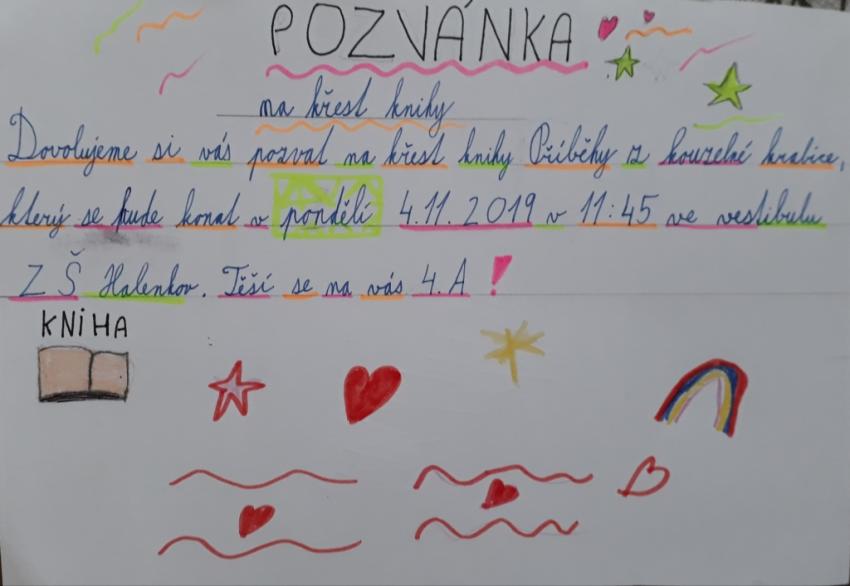 POZVÁNKA
na křest knihy
Dovolujeme si vás pozvat na křest knihy Příběhy z kouzelné krabice,
který se bude konat v pondělí 4.11.2019 v 11:45 ve vestibulu
ZŠ Halenkov. Těší se na vás 4.A!
KNiHA